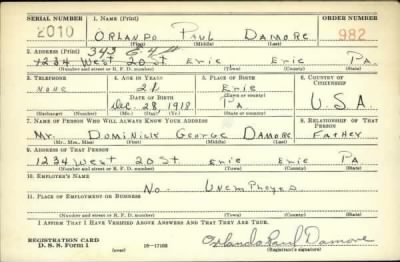 SERIAL NUMBER 1. NAME (Print) ORDER NUMBER
2010 ORLANDO PAUL DAMORE 982
(First) (Middle) (Last)
2. ADDRESS (Print) 343 E. 4th
1234 West 20 St Erie Erie Pa.
(Number and street or R. F. D. number) (Town) (County) (State)
3. TELEPHONE 4. AGE IN YEARS 5. PLACE OF BIRTH 6. COUNTRY OF CITIZENSHIP
None 21 Erie
DATE OF BIRTH (Town or county)
Dec. 28, 1918 Pa U.S.A.
(Exchange) (Number) (Mo.) (Day) (Yr.) (State or country)
7. NAME OF PERSON WHO WILL ALWAYS KNOW YOUR ADDRESS 8. RELATIONSHIP OF THAT PERSON
Mr. Dominick George Damore Father
(Mr., Mrs., Miss) (First) (Middle) (Last)
9. ADDRESS OF THAT PERSON
1234 West 20 St Erie Erie Pa
(Number and street or R. F. D. number) (Town) (County) (State)
10. EMPLOYER'S NAME
No - Unemployed
11. PLACE OF EMPLOYMENT OR BUSINESS
(Number and street or R. F. D. number) (Town) (County) (State)
I AFFIRM THAT I HAVE VERIFIED ABOVE ANSWERS AND THAT THEY ARE TRUE.
REGISTRATION CARD Orlando Paul Damore
D. S. S. Form 1 (over) 16—17105 (Registrant's signature)